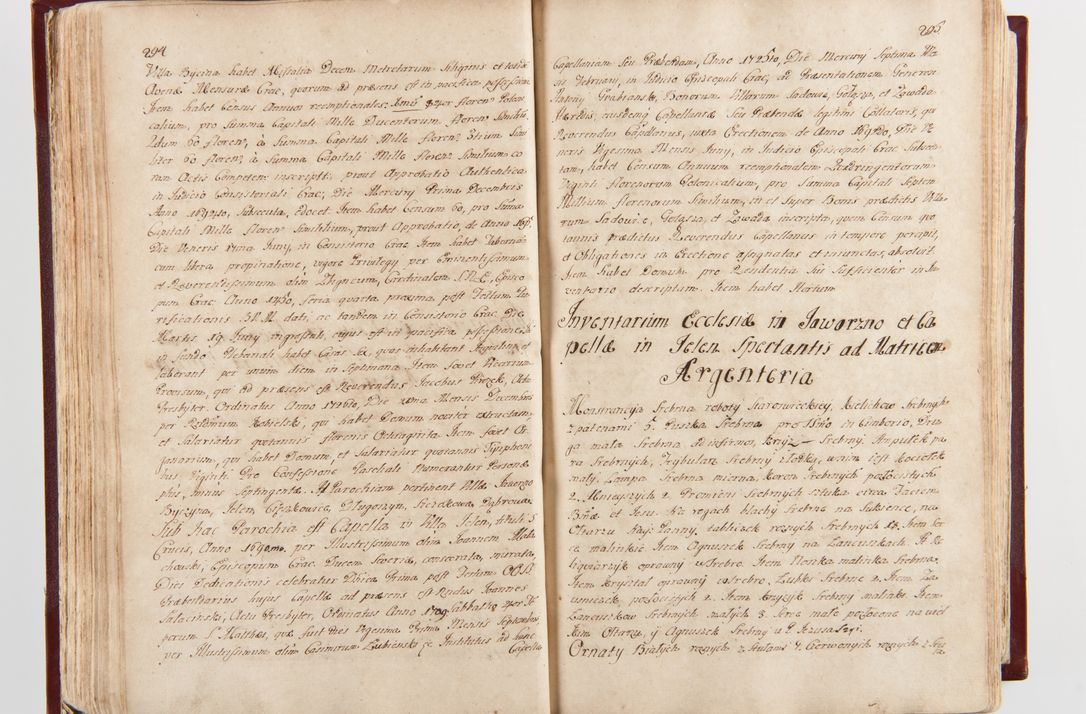 294
Villa Byczna habet Missalia Decem Metretarum Siliginis et totide
Avenæ Mensuræ Crac, quorum ad præsens est in pacifica possessione
Item habet Census Annuos reemptionales: florenos Polon
calium, pro Summa Capitali Mille Ducentorum florenorum Similiū
Item 60 floren, a Summa Capitali Mille floren Similium Simi
liter 60 florenor, a Summa Capitali Mille floren Similium co
ram Actis Competen: inscripti, prout Approbatio Authentica
in Judicio Consistoriali Crac, Die Mercurij Prima Decembris
Anno subsecuta, edocet. Item habet Censum 60, pro Suma
Capitali Mille floren Similium, prout Approbatio, de Anno
Die Veneris 17ma Juny, in Consistorio Crac. Item habet Tabernam
cum libera propinatione, vigore Privilegij per Eminentissimum
et Reverendissimum olim Zbigneum, Cardinalem S.R.E. Episco
pum Crac: Anno 1450, feria quarta proxima post Festum Pu
rificationis B.V.M. dati, ac tandem in Consistorio Crac Die
Martis 19 Juny ingrossati, cujus est in pacifica possessione
in fundo Plebanali habet Casas sex, quas inhabitant Inquilini et
laborant per unum diem in Septimana. Item fovet Vicarium
Provisum, qui ad præsens est Reverendus Jacobus Actu
Presbyter Ordinatus Anno 1726to, Die Mensis Decembris
per qui habet Domum noviter extructam,
et Salariatur quotannis florenis Octuaginta. Item fovet Or
ganarium, qui habet Domum, et Salariatur quotannis Tymphoni
bus Viginti. Pro Confessione Paschali Numerantur Personæ
plus minus Septingentæ. Ad Parochiam pertinent Villæ Jaworzno
Byczyna, Jelen, Cięszkowice, Długoszyn, Szczakowa, Dąbrowa
Sub hac Parochia est Capella in Villa Jelen, tituli S
Crucis, Anno per Illustrissimum olim Joannem Mała
chowski, Episcopum Crac: Ducem Severiæ, consecrata, murata,
Dies Dedicationis celebratur Dñica Prima post Festum OO.SS.
Præbendarius hujus Capellæ ad præsens est Rndus Joannes
Salaciński, Actu Presbyter, Ordinatus Anno 1709 Sabbatho 4tuor Te
porum S. Matthæi, quæ fuit dies Vigesima Prima Mensis Septembris,
per Illustrissimum olim Casimirum Łubienski &c Institutus ad hanc
Capella
295
Capellaniam Seu Præbendam, Anno Die Mercurij Septima Me
sis Februarij, in Judicio Episcopali Crac, ad Præsentationem Generosi
Antonij Grabianski, Bonorum Villarum Sadowie, Gołąsza, et Zawada
Hæredis, eiusdemq Capellaniæ Seu Præbendæ legitimi Collatoris, qui
Reverendus Capellanus, iuxta Erectionem de Anno Die Ve
neris Vigesima Mensis Juny, in Judicio Episcopali Crac Subsecu
tam, habet Censum Annuum reemptionalem Quadringentorum
Viginti florenorum Polonicalium, pro Summa Capitali Septem
Millium florenorum Similium, in et Super Bonis prædictis Villa
rum Sadowie, Gołąsza, et Zawada inscripta, quem Censum quo
tannis prædictus Reverendus Capellanus in tempore percipit,
et Obligationes in Erectione assignatas et iniunctas, absolvit
Item habet Domum pro Residentia Sui Sufficienter in In
ventario descriptam. Item habet Hortum
Inventarium Ecclesiæ in Jaworzno et Ca
pellæ in Jelen Spectantis ad Matricem
Argenteria
Monstrancyja Srebrna roboty Staroswieckiey, Kielichow Srebrnych
z patenami 3. Puszka Srebrna pro SSmo in Ciborio, Dru
ga mała Srebrna ad infirmos, Krzyż Srebrny. Ampułek pa
ra Srebrnych, Trybularz Srebrny y Łodka, w niey iest kociełek
mały, Lampa Srebrna mierna, koron Srebrnych pozłocistych
2. Mnieyszych 2. Promieni Srebrnych sztuka circa Faciem
Bñæ et Jesu. Na rogach blachy Srebrne na Sukience, na
Ołtarzu Nays: Panny, tabliczek roznych Srebrnych Item Ser
ce malinkie Item Agnuszek Srebrny na Lancuszkach. It. Re
liquiarzyk oprawny w Srebro. Item Noszka malinka Srebrna.
Item Krysztal oprawny w Srebro, Łubki Srebrne 2. Item La
ncuszek pozłocistych 2. Item Krzyżyk Srebrny maliuki Item
Lancuszkow Srebrnych małych 3. Serce małe pozłocone na wiel
kim Ołtarzu, y Agnuszek Srebrny u P. Jezusa Szyi.
Ornaty Białych roznych z Stułami 7. Czerwonych roznych z Stu